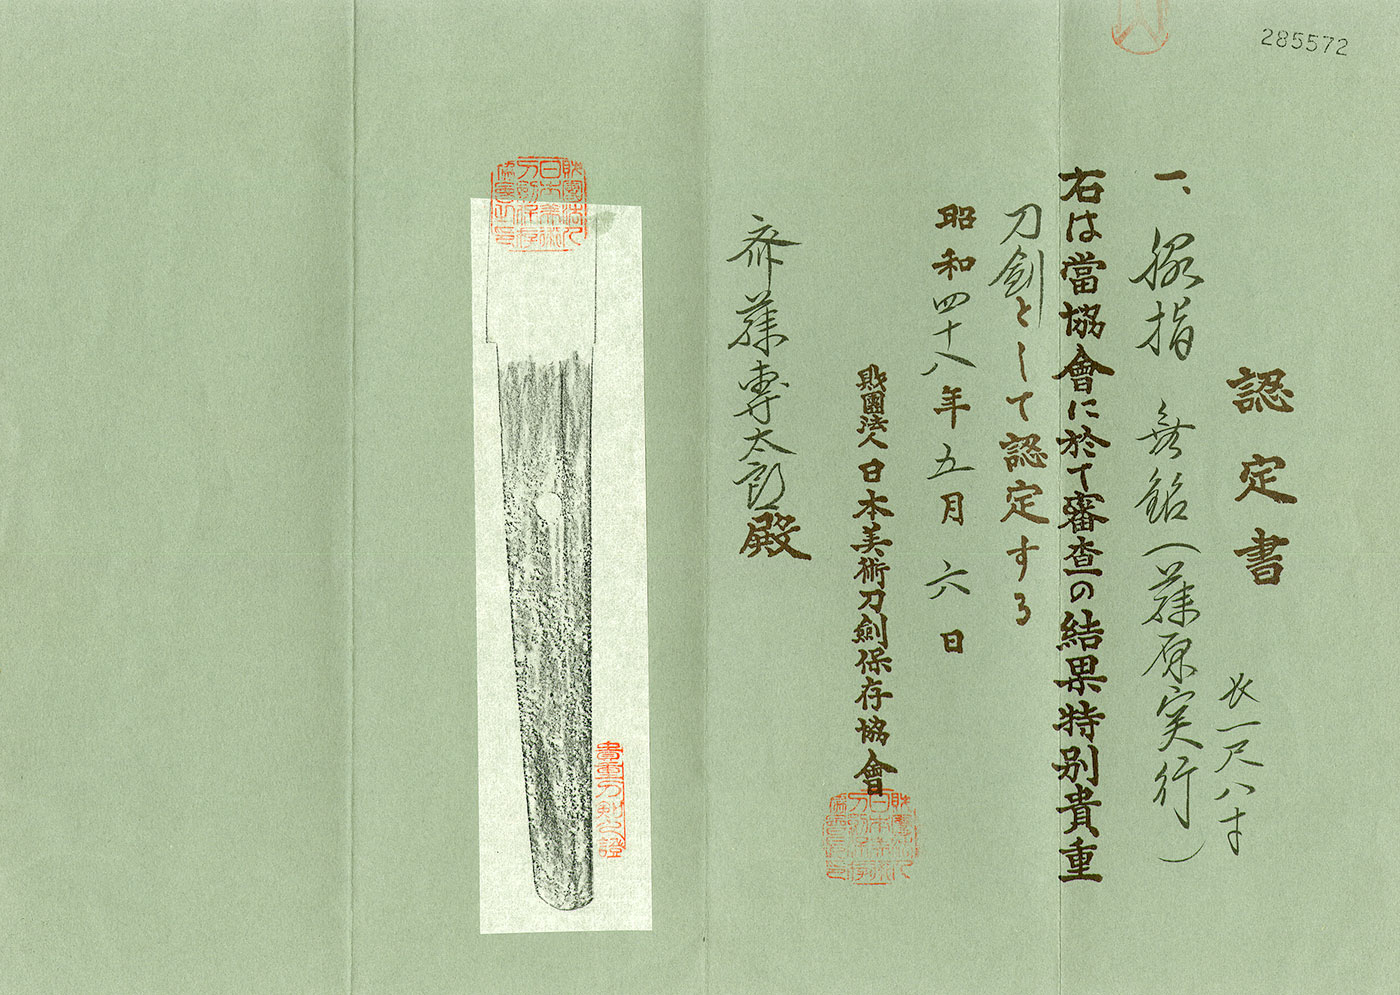 285572
認定書
一、脇指 無銘(藤原実行)
長一尺八寸
右は當協會に於て審査の結果特別貴重
刀劍として認定する
昭和四十八年五月六日
財團法人日本美術刀劍保存協會
齊藤専太郎殿
財團法人日本美術刀劍保存協會之印
貴重刀剣之證